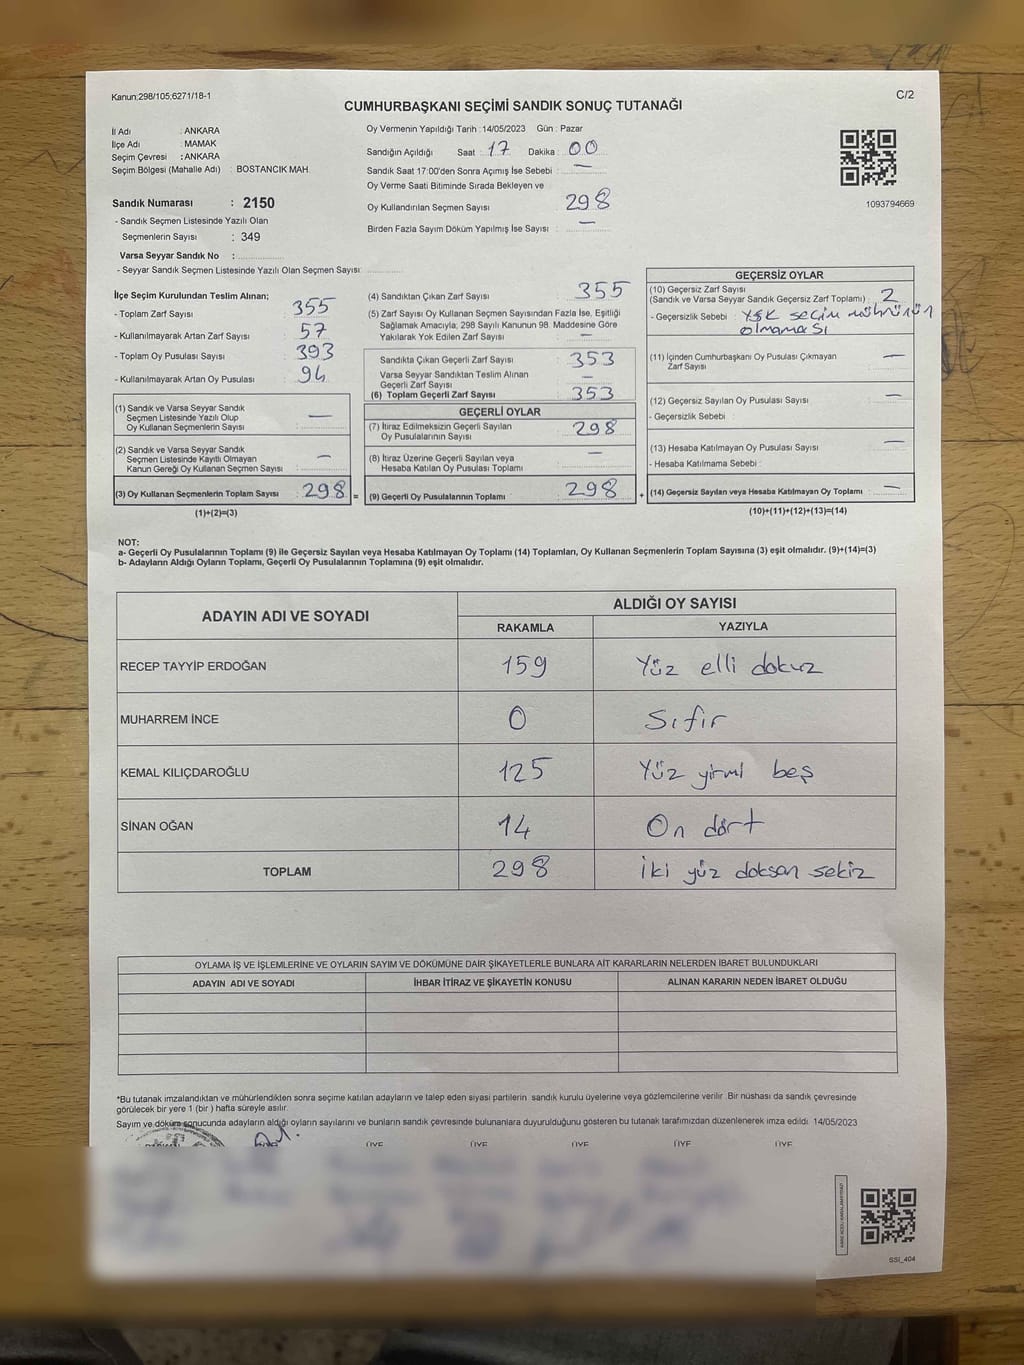 Kanun:298/105;6271/18-1
C/2
CUMHURBAŞKANI SEÇİMİ SANDIK SONUÇ TUTANAĞI
İl Adı : ANKARA
İlçe Adı : MAMAK
Seçim Çevresi : ANKARA
Seçim Bölgesi (Mahalle Adı) : BOSTANCIK MAH.
Sandık Numarası : 2150
- Sandık Seçmen Listesinde Yazılı Olan
Seçmenlerin Sayısı : 349
Varsa Seyyar Sandık No :
- Seyyar Sandık Seçmen Listesinde Yazılı Olan Seçmen Sayısı:
Oy Vermenin Yapıldığı Tarih : 14/05/2023 Gün : Pazar
Sandığın Açıldığı Saat : 17 Dakika : 00
Sandık Saat 17:00'den Sonra Açımış İse Sebebi : —
Oy Verme Saati Bitiminde Sırada Bekleyen ve
Oy Kullandırılan Seçmen Sayısı : 298
Birden Fazla Sayım Döküm Yapılmış İse Sayısı : —
1093794669
İlçe Seçim Kurulundan Teslim Alınan;
- Toplam Zarf Sayısı : 355
- Kullanılmayarak Artan Zarf Sayısı : 57
- Toplam Oy Pusulası Sayısı : 393
- Kullanılmayarak Artan Oy Pusulası : 94
(1) Sandık ve Varsa Seyyar Sandık
Seçmen Listesinde Yazılı Olup
Oy Kullanan Seçmenlerin Sayısı : —
(2) Sandık ve Varsa Seyyar Sandık
Seçmen Listesinde Kayıtlı Olmayan
Kanun Gereği Oy Kullanan Seçmen Sayısı : —
(3) Oy Kullanan Seçmenlerin Toplam Sayısı : 298 =
(1)+(2)=(3)
(4) Sandıktan Çıkan Zarf Sayısı : 355
(5) Zarf Sayısı Oy Kullanan Seçmen Sayısından Fazla İse, Eşitliği
Sağlamak Amacıyla, 298 Sayılı Kanunun 98. Maddesine Göre
Yakılarak Yok Edilen Zarf Sayısı : —
Sandıkta Çıkan Geçerli Zarf Sayısı : 353
Varsa Seyyar Sandıktan Teslim Alınan
Geçerli Zarf Sayısı : —
(6) Toplam Geçerli Zarf Sayısı : 353
GEÇERLİ OYLAR
(7) İtiraz Edilmeksizin Geçerli Sayılan
Oy Pusulalarının Sayısı : 298
(8) İtiraz Üzerine Geçerli Sayılan veya
Hesaba Katılan Oy Pusulası Toplamı : —
(9) Geçerli Oy Pusulalarının Toplamı : 298 +
GEÇERSİZ OYLAR
(10) Geçersiz Zarf Sayısı
(Sandık ve Varsa Seyyar Sandık Geçersiz Zarf Toplamı) : 2
- Geçersizlik Sebebi : YSK seçim mührünün
olmaması
(11) İçinden Cumhurbaşkanı Oy Pusulası Çıkmayan
Zarf Sayısı : —
(12) Geçersiz Sayılan Oy Pusulası Sayısı : —
- Geçersizlik Sebebi :
(13) Hesaba Katılmayan Oy Pusulası Sayısı : —
- Hesaba Katılmama Sebebi :
(14) Geçersiz Sayılan veya Hesaba Katılmayan Oy Toplamı : —
(10)+(11)+(12)+(13)=(14)
NOT:
a- Geçerli Oy Pusulalarının Toplamı (9) ile Geçersiz Sayılan veya Hesaba Katılmayan Oy Toplamı (14) Toplamları, Oy Kullanan Seçmenlerin Toplam Sayısına (3) eşit olmalıdır. (9)+(14)=(3)
b- Adayların Aldığı Oyların Toplamı, Geçerli Oy Pusulalarının Toplamına (9) eşit olmalıdır.
ADAYIN ADI VE SOYADI
ALDIĞI OY SAYISI
RAKAMLA YAZIYLA
RECEP TAYYİP ERDOĞAN 159 Yüz elli dokuz
MUHARREM İNCE 0 Sıfır
KEMAL KILIÇDAROĞLU 125 Yüz yirmi beş
SİNAN OĞAN 14 On dört
TOPLAM 298 iki yüz doksan sekiz
OYLAMA İŞ VE İŞLEMLERİNE VE OYLARIN SAYIM VE DÖKÜMÜNE DAİR ŞİKAYETLERLE BUNLARA AİT KARARLARIN NELERDEN İBARET BULUNDUKLARI
ADAYIN ADI VE SOYADI İHBAR İTİRAZ VE ŞİKAYETİN KONUSU ALINAN KARARIN NEDEN İBARET OLDUĞU
*Bu tutanak imzalandıktan ve mühürlendikten sonra seçime katılan adayların ve talep eden siyasi partilerin sandık kurulu üyelerine veya gözlemcilerine verilir. Bir nüshası da sandık çevresinde
görülecek bir yere 1 (bir ) hafta süreyle asılır.
Sayım ve döküm sonucunda adayların aldığı oyların sayılarını ve bunların sandık çevresinde bulunanlara duyurulduğunu gösteren bu tutanak tarafımızdan düzenlenerek imza edildi. 14/05/2023
ÜYE ÜYE ÜYE ÜYE ÜYE
SSİ_404